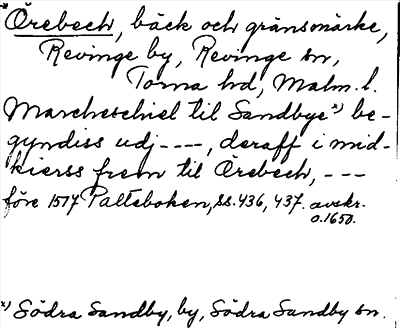 *Örebech, bäck och gränsmärke,
Revinge by, Revinge sn,
Torna hd, Malm. l.
Marcheschiel til Sandbye x) be-
gyndiss udj ----, deraff i mid-
kierss frem til Örebech, ---
före 1517 Palteboken, ss. 436, 437. avskr.
o. 1650.
x) Södra Sandby, by, Södra Sandby sn.